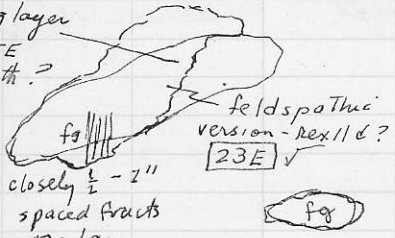 layer
th. ?
fg
feldspathic
version - rexll'd ?
23E ✓
closely ½ - 1"
spaced fracts
fg